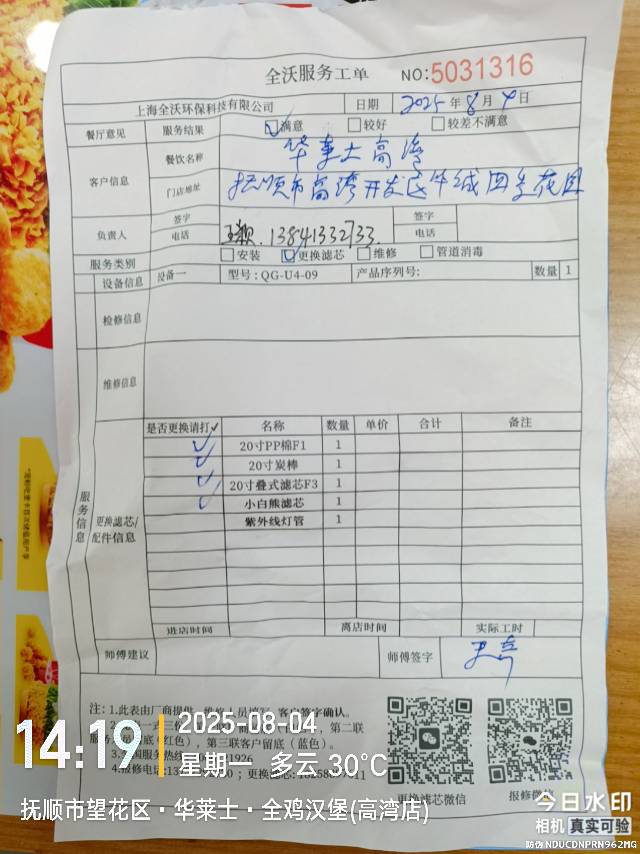 全沃服务工单 NO:5031316
上海全沃环保科技有限公司 日期 2025年8月4日
餐厅意见 服务结果 满意 较好 较差不满意
客户信息 餐饮名称 华莱士高湾
门店地址 抚顺市高湾开发区牛城四季花园
负责人 签字 签字
电话 王颖.13841332733 电话
服务类别 安装 更换滤芯 维修 管道消毒
设备信息 设备一 型号:QG-U4-09 产品序列号: 数量 1
检修信息
维修信息
服务信息
更换滤芯/
配件信息
是否更换请打✓ 名称 数量 单价 合计 备注
✓ 20寸PP棉F1 1
✓ 20寸炭棒 1
✓ 20寸叠式滤芯F3 1
✓ 小白熊滤芯 1
紫外线灯管 1
进店时间 离店时间 实际工时
师傅建议 师傅签字
注:1.此表由厂商提供,维修人员填写,客户签字确认。
第二联
(红色),第三联客户留底(蓝色)。
更换滤芯微信 报修微信
14:19
2025-08-04
星期一 多云 30°C
抚顺市望花区·华莱士·全鸡汉堡(高湾店)
今日水印
相机 真实可验
防伪 NDUCDNPRN962MG